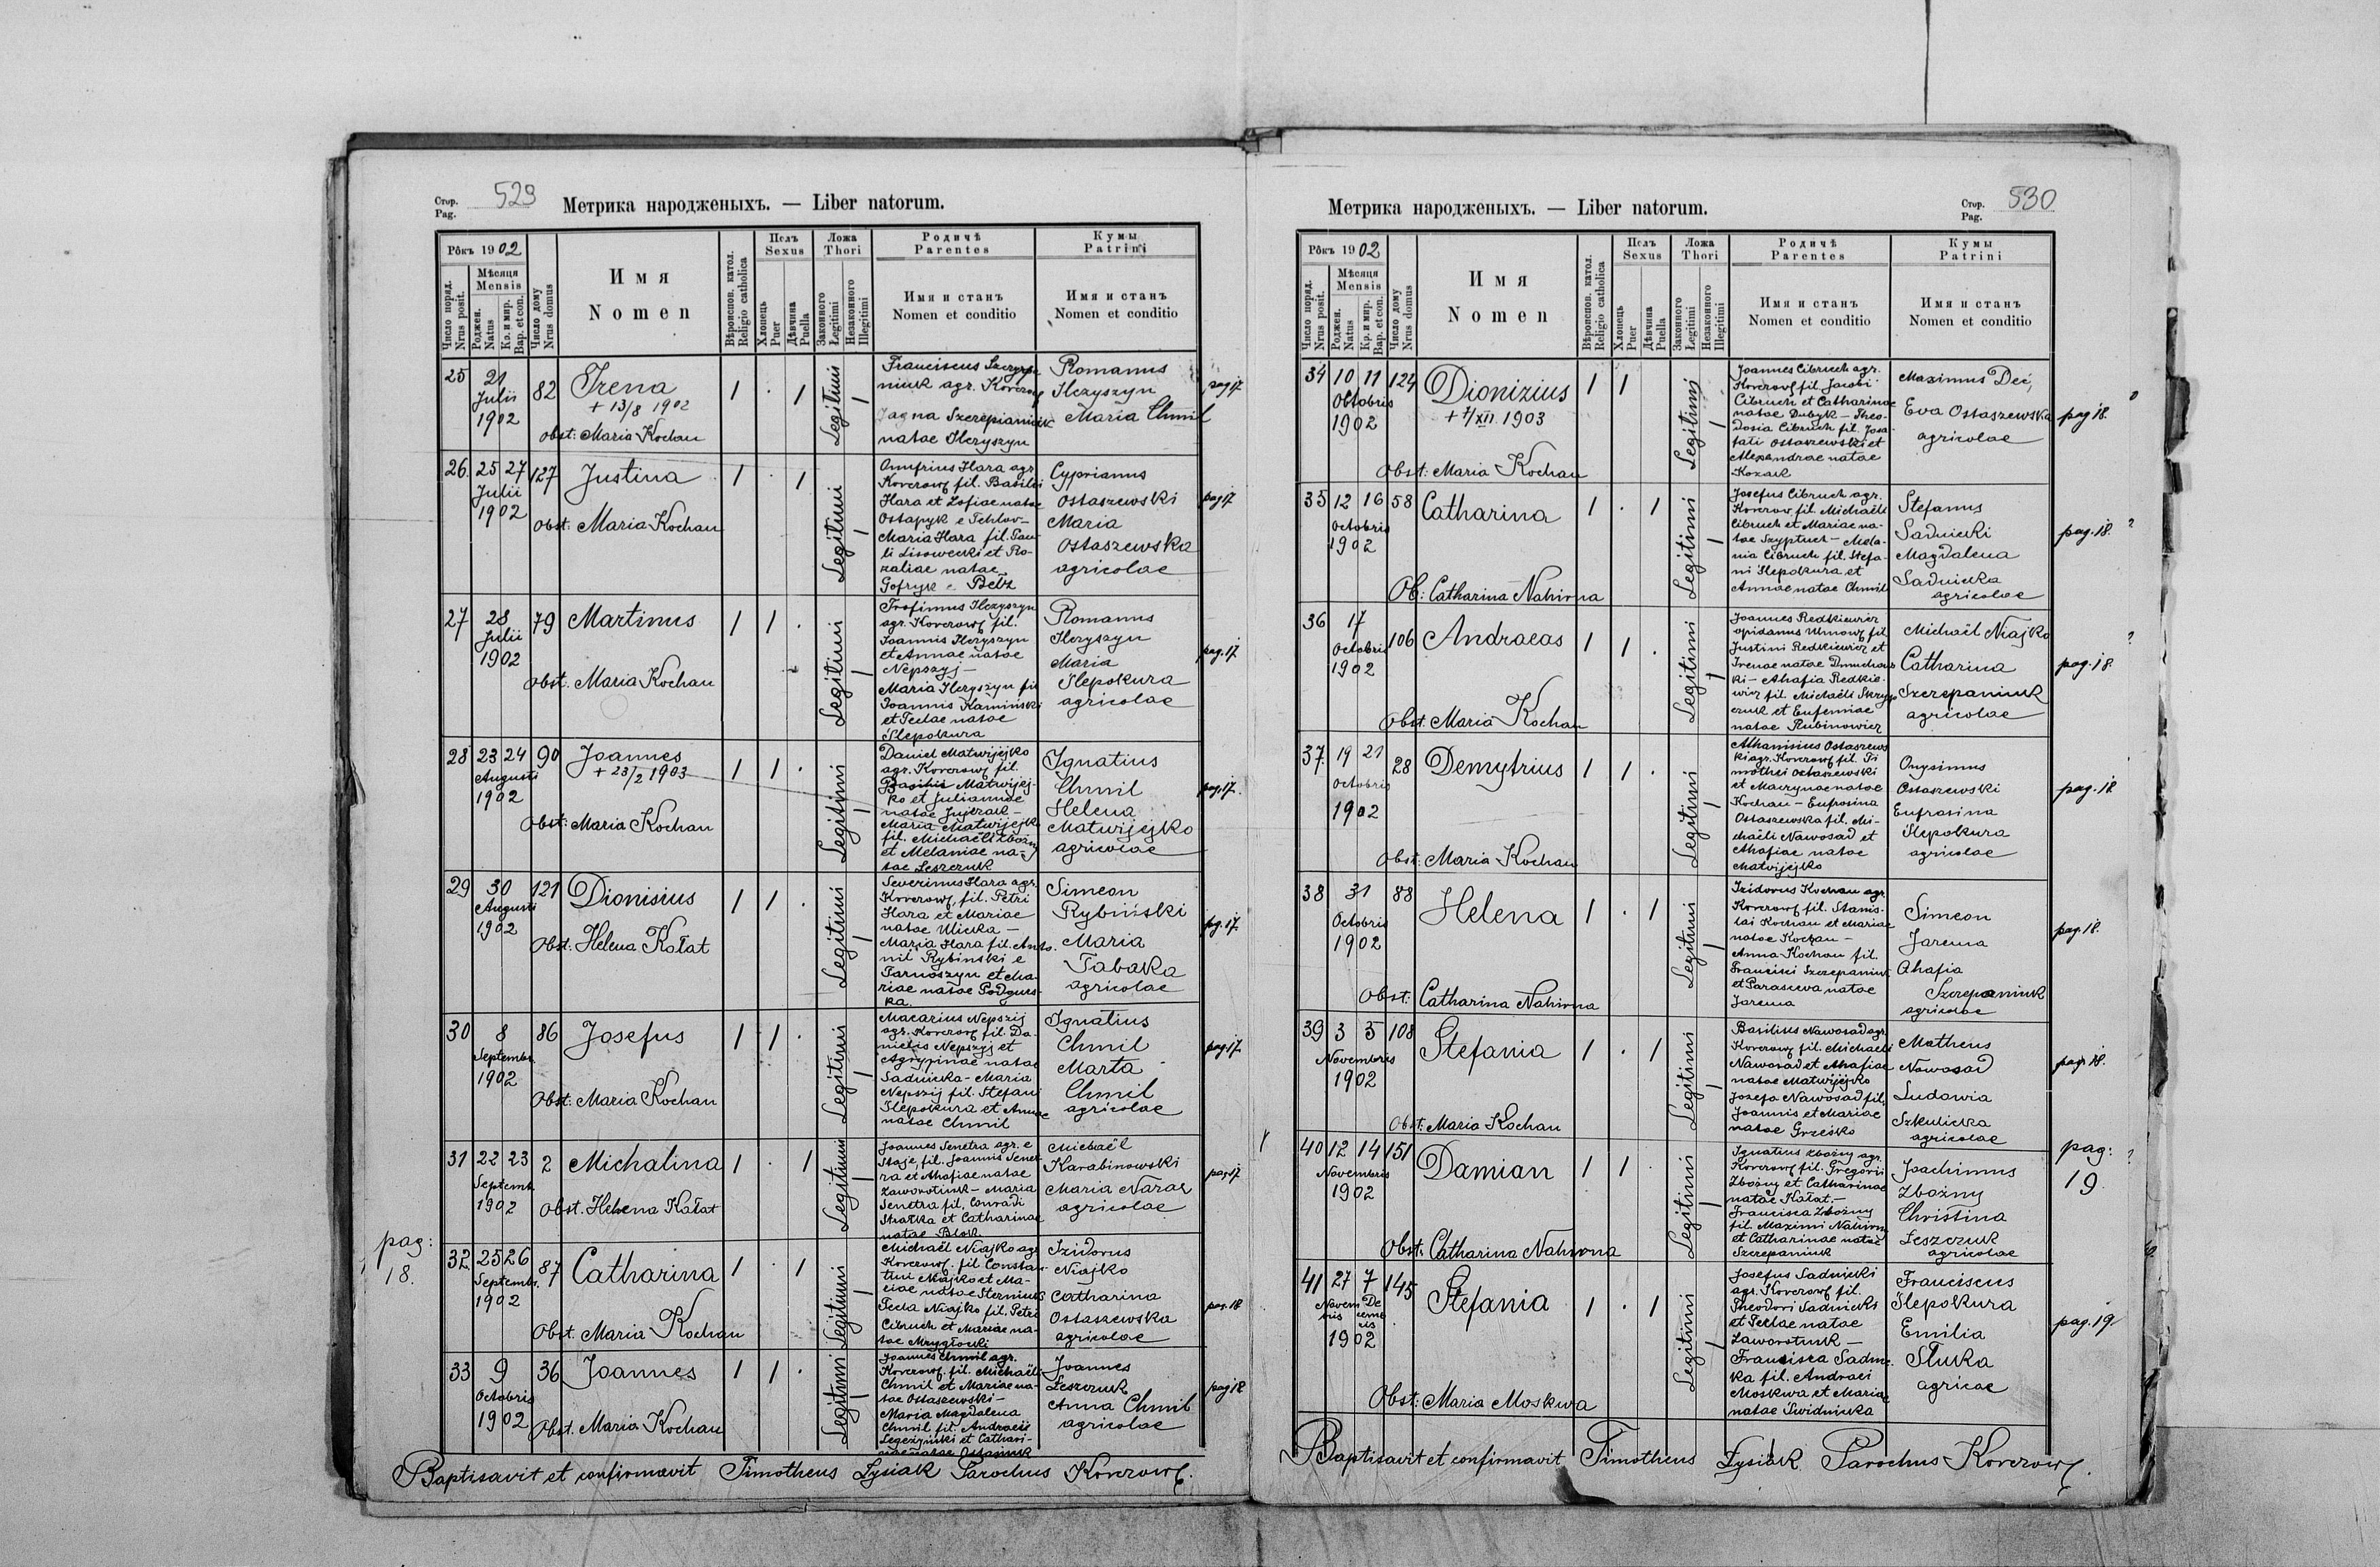 Стор. Pag. 529
Метрика народженыхъ. — Liber natorum.
Рôкъ 1902
Число поряд. Nrus posit.
Мѣсяця Mensis
Роджен. Natus
Кр. и мир. Bap. et con.
Число дому Nrus domus
Имя
Nomen
Вѣроиспов. катол. Religio catholica
Полъ Sexus
Хлопець Puer
Дѣвчина Puella
Ложа Thori
Законного Legitimi
Незаконного Illegitimi
Родичѣ
Parentes
Имя и станъ
Nomen et conditio
Кумы
Patrini
Имя и станъ
Nomen et conditio
25 21 Julii 1902 82 Irena
+ 13/8 1902
obst: Maria Kochan
1 . 1 Legitimi
Franciscus
niuk agr. Korczow
Jagna Szczepaniuk
natae Ilczyszyn
Romanus
Ilczyszyn
Maria Chmil
pag 17.
26. 25 27 Julii 1902 127 Justina
obst. Maria Kochan
1 . 1 Legitimi
Onufrius Hara agr.
Korczow fil. Basilii
Hara et Zofiae natae
Ostapyk e
Maria Hara fil. Pau-
li Lisowecki et Ro-
zaliae natae
Gofryk e Bełz
Cyprianus
Ostaszewski
Maria
Ostaszewska
agricolae
pag 17
27 28 Julii 1902 79 Martinus
obst. Maria Kochan
1 1 . Legitimi
Trofimus Ilczyszyn
agr. Korczow fil.
Joannis Ilczyszyn
et Annae natae
Nepszyj —
Maria Ilczyszyn fil
Joannis Kamiński
et Teclae natae
Ślepokura
Romanus
Ilczyszyn
Maria
Ślepokura
agricolae
pag. 17.
28 23 24 Augusti 1902 90 Joannes
+ 23/2 1903
obst: Maria Kochan
1 1 . Legitimi
Daniel Matwijejko
agr. Korczow fil.
Basilii Matwijej-
ko et Juliannae
natae Jujczak —
Maria Matwijejko
fil. Michaëli Zbożny
et Melaniae na-
tae Leszczuk
Ignatius
Chmil
Helena
Matwijejko
agricolae
pag. 17.
29 30 Augusti 1902 121 Dionisius
obst. Helena Kałat
1 1 . Legitimi
Severinus Hara agr.
Korczow, fil. Petri
Hara et Mariae
natae Ulicka —
Maria Hara fil. Anto-
nii Rybinski e
Tarnoszyn et Ma-
riae natae Podgurs-
ka.
Simeon
Rybiński
Maria
Tabaka
agricolae
pg. 17.
30 8 Septembr. 1902 86 Josefus
Obst: Maria Kochan
1 1 . Legitimi
Macarius Nepszij
agr. Korczow fil. Da-
nielis Nepszyj et
Agrypinae natae
Sadnicka - Maria
Nepszij fil. Stefani
Ślepokura et Annae
natae Chmil
Ignatius
Chmil
Marta
Chmil
agricolae
pag. 17.
31 22 23 Septemb. 1902 2 Michalina
obst. Helena Kałat
1 . 1 Legitimi
Joannes Senetra agr. e
Staje, fil. Joannis Senet-
ra et Ahafiae natae
Zaworotiuk — Maria
Senetra fil. Conradi
Skałka et Catharinae
natae Blok
Michaël
Karabinowski
Maria Naraę
agricolae
pag. 17
pag: 18.
32. 25 26 Septemb. 1902 87 Catharina
Obst. Maria Kochan
1 . 1 Legitimi
Michaël Niajko agr
Korczow, fil Constan-
tini Niajko et Ma-
riae natae Sterniuk
Tecla Niajko fil. Petri
Cibruch et Mariae na-
tae Mrygłocki
Izidorus
Niajko
Catharina
Ostaszewska
agricolae
pag. 18
33 9 Octobris 1902 36 Joannes
Obst. Maria Kochan
1 1 . Legitimi
Joannes Chmil agr.
Korczow, fil. Michaëli
Chmil et Mariae na-
tae Ostaszewski —
Maria Magdalena
Chmil fil. Andraeii
et Cathari-
nae natae
Joannes
Leszczuk
Anna Chmil
agricolae
pag 18
Baptisavit et confirmavit Timotheus Łysiak Parochus Korczow.
Метрика народженыхъ. — Liber natorum.
Стор. Pag. 530
Рôкъ 1902
Число поряд. Nrus posit.
Мѣсяця Mensis
Роджен. Natus
Кр. и мир. Bap. et con.
Число дому Nrus domus
Имя
Nomen
Вѣроиспов. катол. Religio catholica
Полъ Sexus
Хлопець Puer
Дѣвчина Puella
Ложа Thori
Законного Legitimi
Незаконного Illegitimi
Родичѣ
Parentes
Имя и станъ
Nomen et conditio
Кумы
Patrini
Имя и станъ
Nomen et conditio
34 10 11 Octobris 1902 124 Dionizius
+ 7/XII 1903
Obst: Maria Kochan
1 1 Legitimi
Joannes Cibruch agr.
Korczow fil. Jacobi
Cibruch et Catharinae
natae Dubyk — Theo-
dosia Cibruch fil. Josa-
fati Ostaszewski et
Alexandrae natae
Kozak
Maximus Deć,
Eva Ostaszewska
agricolae
pag 18.
35 12 16 Octobris 1902 58 Catharina
Ob: Catharina Nahirna
1 . 1 Legitimi
Josefus Cibruch agr.
Korczow fil. Michaëli
Cibruch et Mariae na-
tae Szyptuch — Mela-
nia Cibruch fil. Stefa-
ni Ślepokura et
Annae natae Chmil
Stefanus
Sadnicki
Magdalena
Sadnicka
agricolae
pag. 18. ?
36 17 Octobris 1902 106 Andraeas
Obst. Maria Kochan
1 1 . Legitimi
Joannes Redkiewicz
opidanus Uhnow, fil
Justini Redkiewicz et
Irenae natae Dmuchow-
ki — Ahafia Redkie-
wicz fil. Michaëli Skryp-
czuk et Eufemiae
natae Rubinowicz
Michaël Niajko
Catharina
Szczepaniuk
agricolae
pag. 18. ?
37. 19 21 Octobris 1902 28 Demytrius
Obst: Maria Kochan
1 1 . Legitimi
Athanisius Ostaszews
ki agr. Korczow, fil. Ti
mothei Ostaszewski
et Macrynae natae
Kochan — Eufrosina
Ostaszewska fil. Mi-
chaëli Nawosad et
Ahafiae natae
Matwijejko
Onysimus
Ostaszewski
Eufrasina
Ślepokura
agricolae
pag. 18
38 31 Octobris 1902 88 Helena
Obst: Catharina Nahirna
1 . 1 Legitimi
Izidorus Kochan agr.
Korczow, fil. Stanis-
lai Kochan et Mariae
natae Kochan —
Anna Kochan fil.
Francisci Szczepaniuk
et Parascewa natae
Jarema
Simeon
Jarema
Ahafia
Szczepaniuk
agricolae
pag. 18.
39 3 5 Novembris 1902 108 Stefania
Obst: Maria Kochan
1 . 1 Legitimi
Basilius Nawosad agr.
Korczow, fil. Michaeli
Nawosad et Ahafiae
natae Matwijejko
Jozefa Nawosad fil.
Joannis et Mariae
natae Grześko
Matheus
Nowosad
Ludowia
Szkulicka
agricolae
pag. 18.
40 12 14 Novembris 1902 151 Damian
Obst. Catharina Nahirna
1 1 Legitimi
Ignatius Zbożny agr.
Korczow, fil. Gregorii
Zbożny et Catharinae
natae Kałat. —
Francisca Zbożny
fil. Maximi Nahirny
et Catharinae natae
Szczepaniuk
Joachimus
Zbożny
Christina
Leszczuk
agricolae
pag: 19. ?
41 27 7 Novembris Decembris 1902 145 Stefania
Obst: Maria Moskwa
1 . 1 Legitimi
Josefus Sadnicki
agr. Korczow fil.
Theodori Sadnicki
et Teclae natae
Zaworotiuk —
Francisca Sadnic-
ka fil. Andraei
Moskwa et Mariae
natae Świdnicka
Franciscus
Ślepokura
Emilia
Słuka
agricae
pag. 19.
Baptisavit et confirmavit Timotheus Łysiak Parochus Korczow.